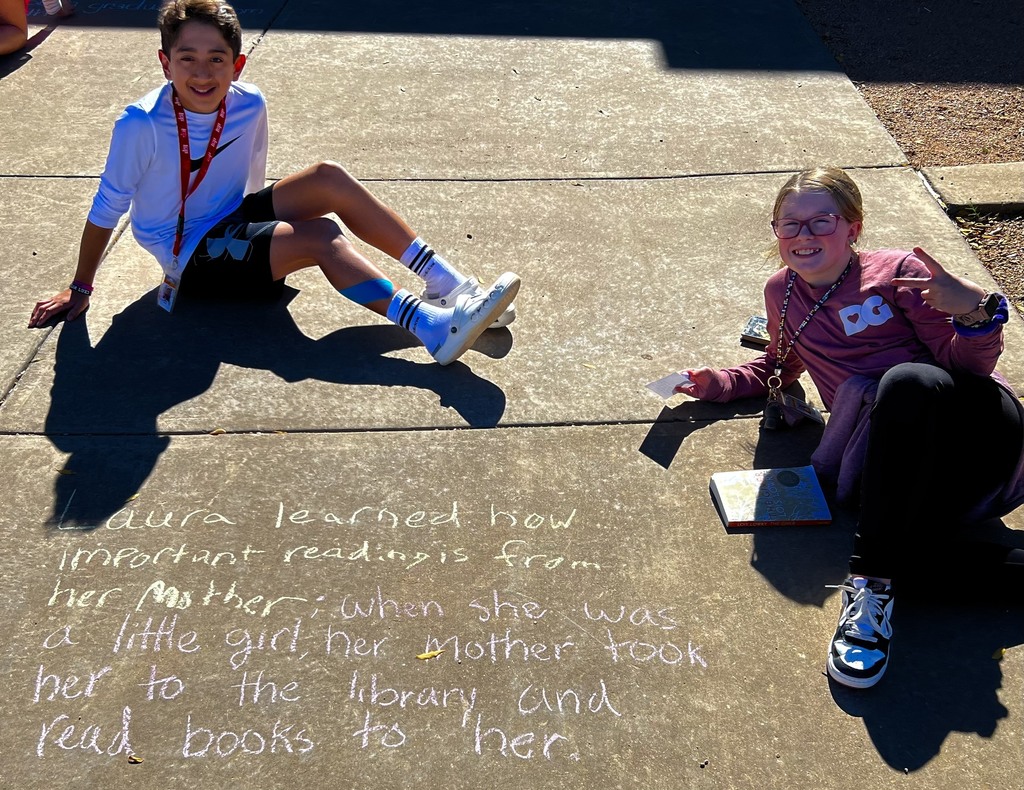 DG
Laura learned how
important reading is from
her Mother; when she was
a little girl, her Mother took
her to the library and
read books to her.